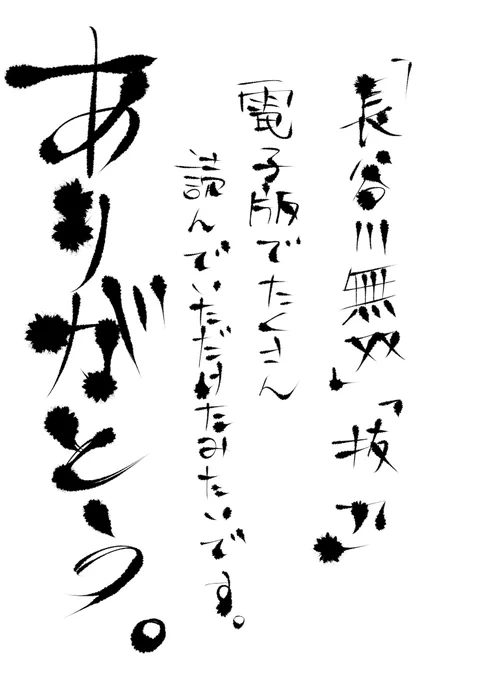 「長谷川無双」「抜刀」
電子版でたくさん
読んでいただけたみたいです。
ありがとう。